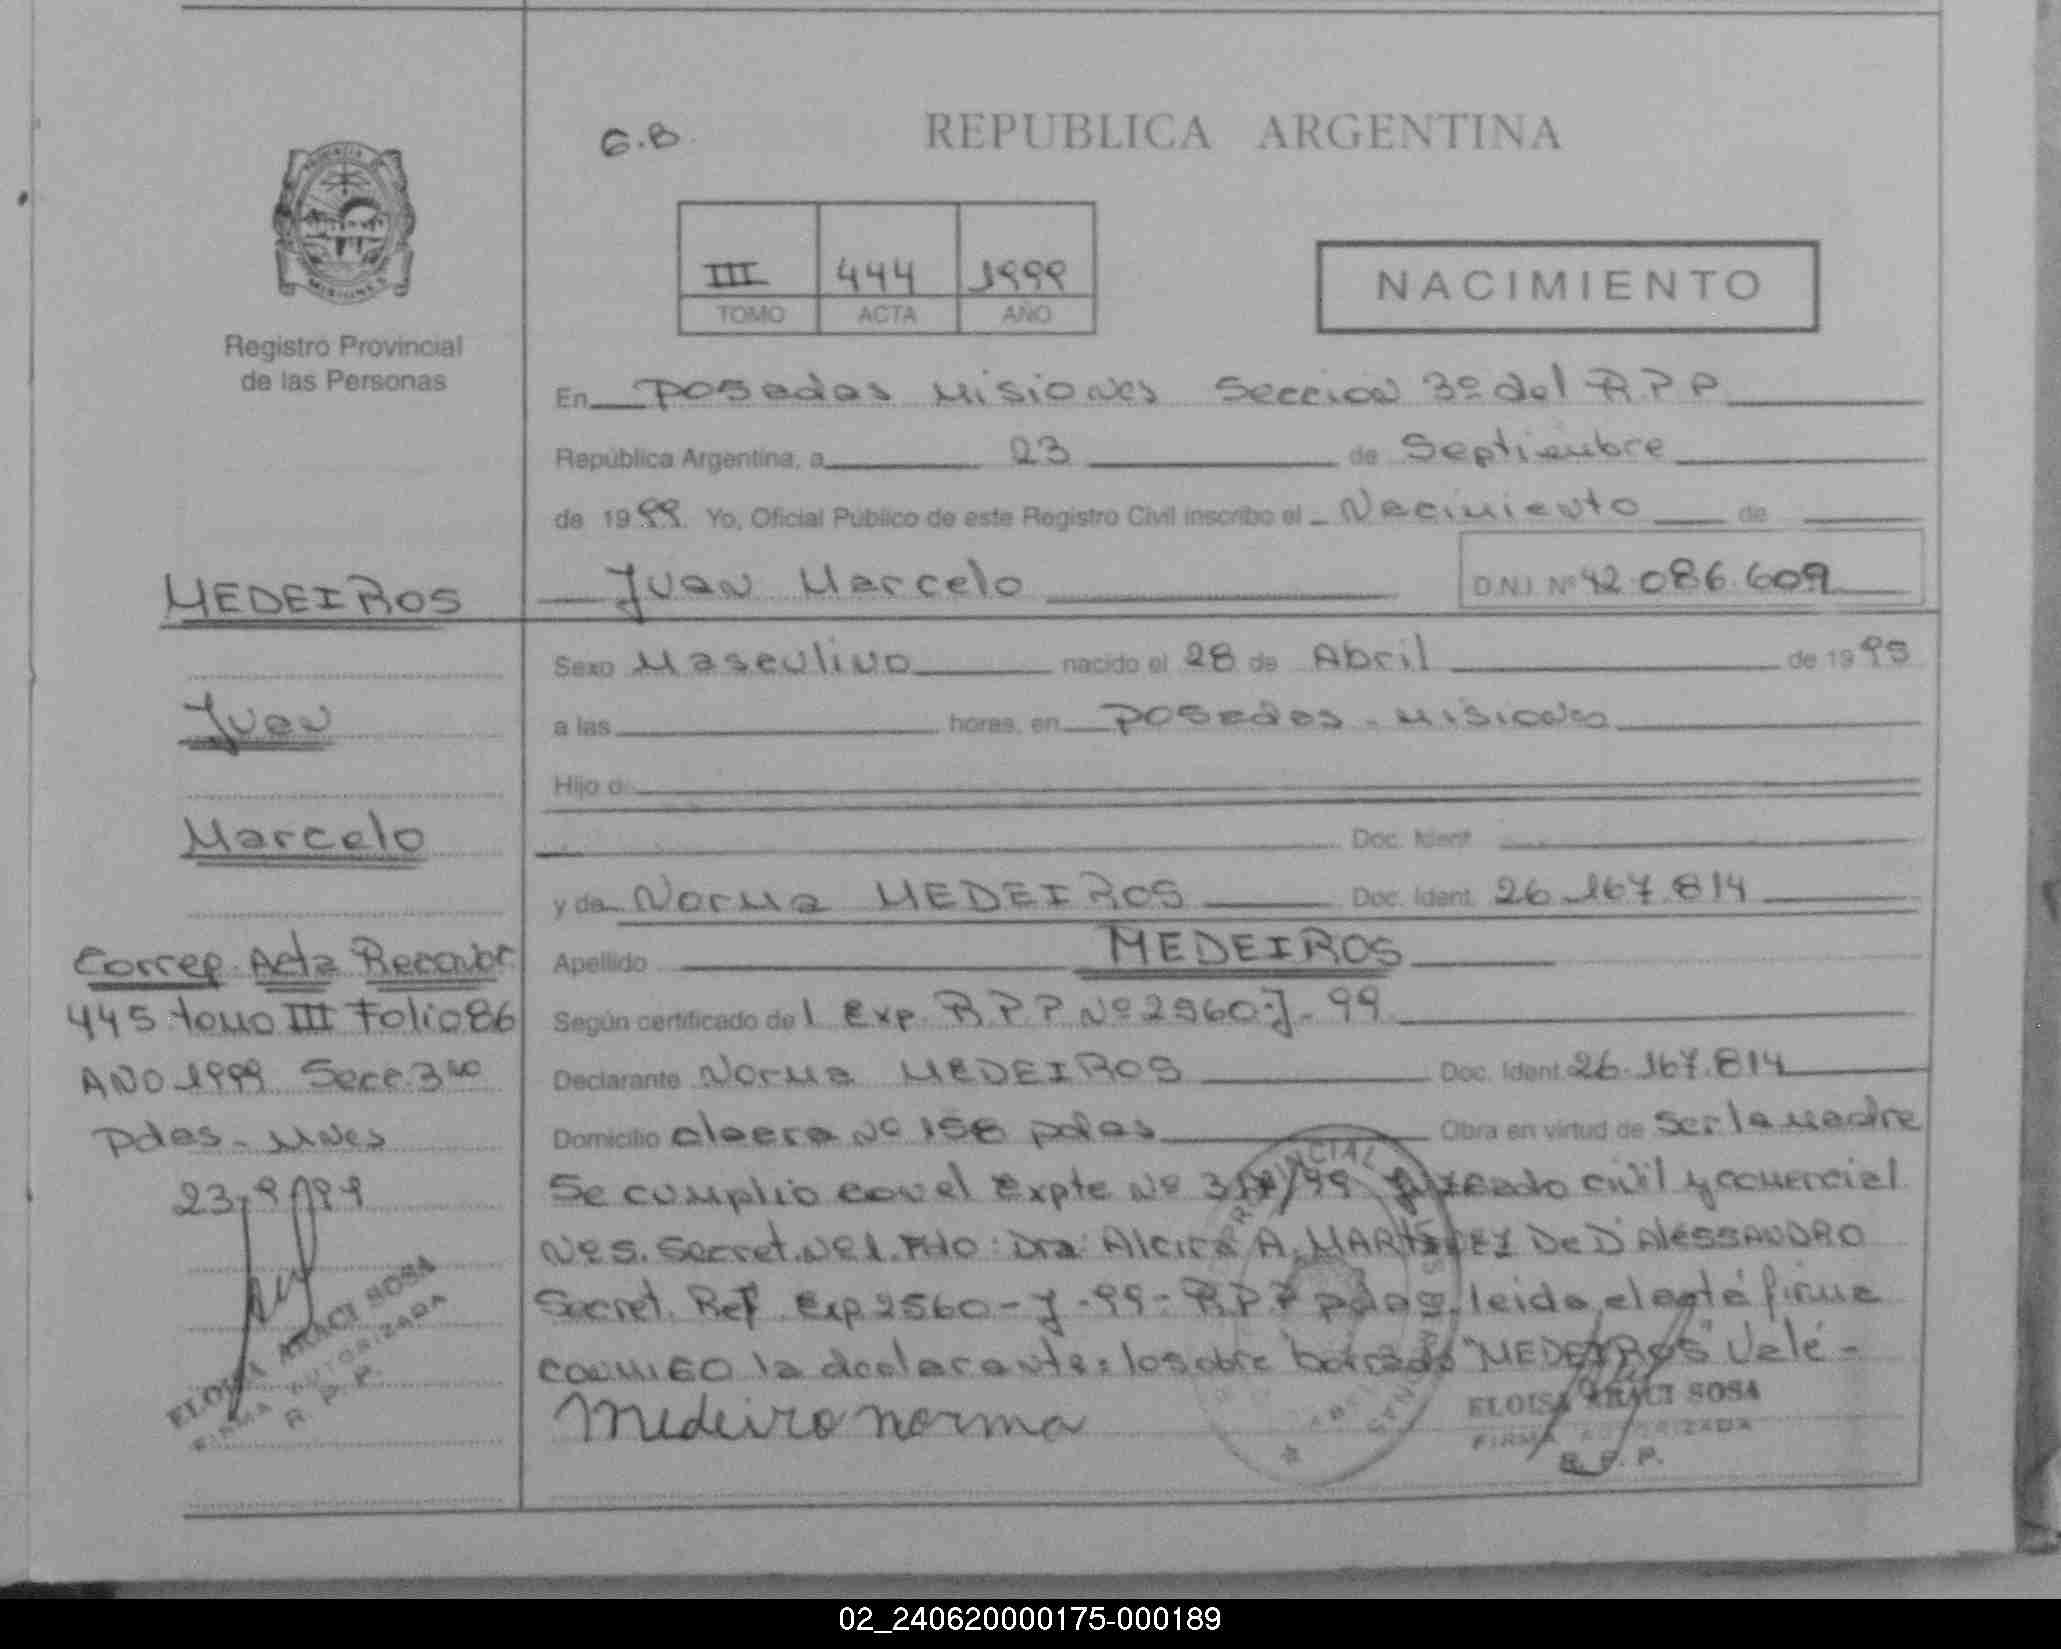 G.B.
REPUBLICA ARGENTINA
III 444 1999
TOMO ACTA AÑO
NACIMIENTO
Registro Provincial
de las Personas
En Posadas Misiones Seccion 3º del R.P.P
República Argentina, a 23 de Septiembre
de 1999. Yo, Oficial Público de este Registro Civil inscribo el Nacimiento de
Juan Marcelo D.N.I. Nº 42.086.609
Sexo Masculino nacido el 28 de Abril de 1995
a las horas, en Posadas - Misiones
Hijo d
Doc. Ident.
y de Norma MEDEIROS Doc. Ident. 26.167.814
Apellido MEDEIROS
Según certificado de l Exp. R.P.P Nº 2960-J-99
Declarante Norma MEDEIROS Doc. Ident. 26.167.814
Domicilio Nº 158 pdas Obra en virtud de ser la madre
Se cumplio con el Expte Nº Juzgado civil y comercial
Nº 5. Secret. Nº 1. Fdo: Dra: Alcira A. MARTINEZ De D'ALESSANDRO
Secret. Ref. Exp. 2560-J-99- R.P.P pdas, leida el acta firma
conmigo la declarante: lo sobre borrado "MEDEIROS" Vale-
Medeiro norma
ELOISA ARACI SOSA
FIRMA AUTORIZADA
R. P. P.
MEDEIROS
Juan
Marcelo
Corresp. Acta Reconoc.
445 tomo III Folio 86
AÑO 1999 Secc. 3ra
Pdas - Mnes
23-9-99
ELOISA ARACI SOSA
FIRMA AUTORIZADA
R. P. P.
02_240620000175-000189